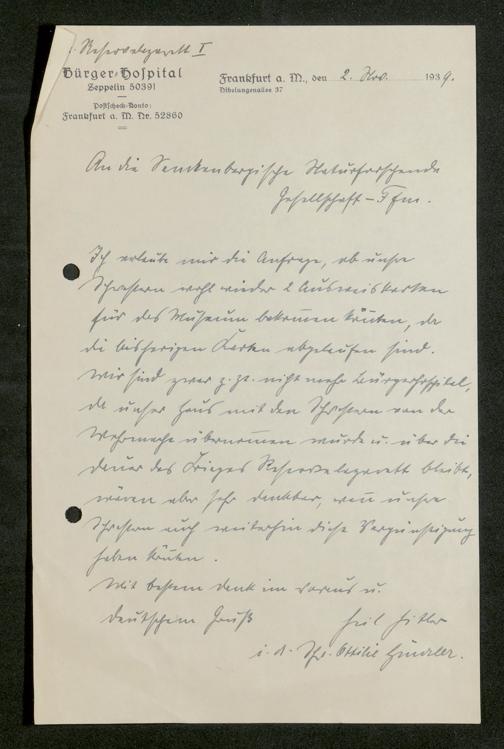 Reservelazarett I
Bürger-Hospital
Zeppelin 50391
Postscheck-Konto:
Frankfurt a. M. Nr. 52860
Frankfurt a. M., den 2. Nov. 1939.
Nibelungenallee 37
An die Senckenbergische Naturforschende
Gesellschaft – Ffm.
Ich erlaube mir die Anfrage, ob unsere
Schwestern wohl wieder 2 Ausweiskarten
für das Museum bekommen könnten, da
die bisherigen Karten abgelaufen sind.
Wir sind zwar z. Zt. nicht mehr Bürgerhospital,
da unser Haus mit den Schwestern von der
Wehrmacht übernommen wurde u. über die
Dauer des Krieges Reservelazarett bleibt,
wären aber sehr dankbar, wenn unsere
Schwestern auch weiterhin diese Vergünstigung
haben könnten.
Mit bestem Dank im Voraus u.
Deutschem Gruß Heil Hitler
i. A. Schw. Ottilie